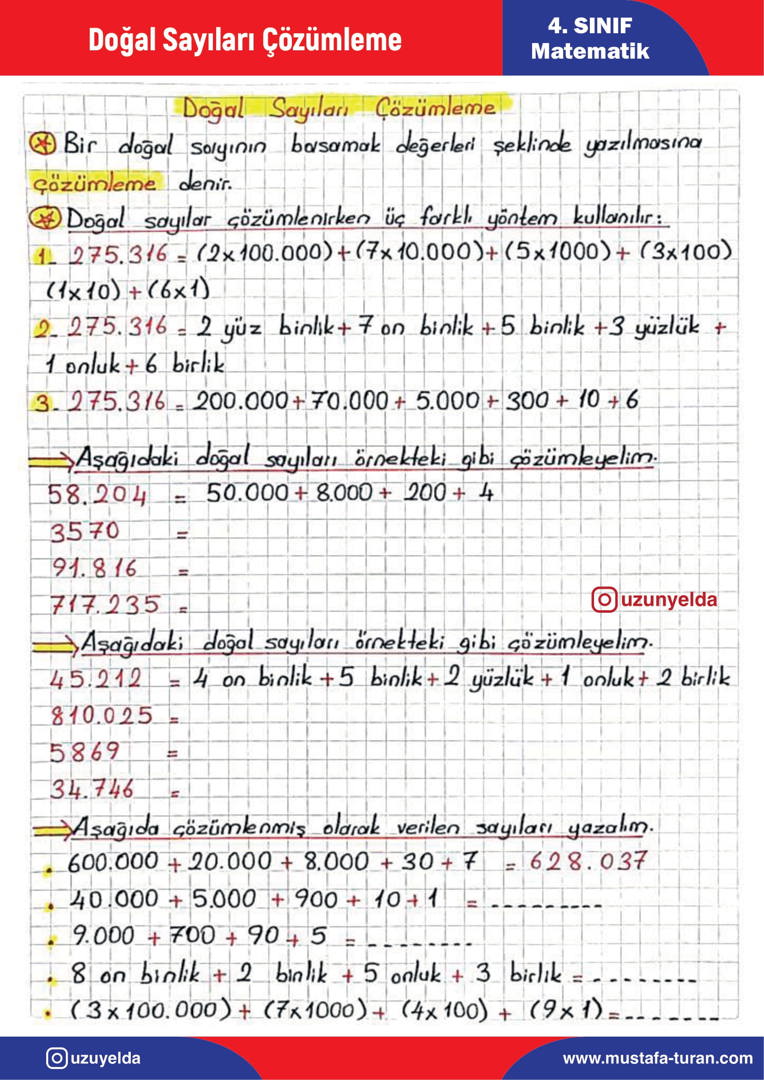 Doğal Sayıları Çözümleme
4. SINIF
Matematik
Doğal Sayıları Çözümleme
Bir doğal sayının basamak değerleri şeklinde yazılmasına
çözümleme denir.
Doğal sayılar çözümlenirken üç farklı yöntem kullanılır:
1- 275.316 = (2x100.000)+(7x10.000)+(5x1000)+(3x100)
(1x10)+(6x1)
2- 275.316 = 2 yüz binlik+7 on binlik+5 binlik+3 yüzlük+
1 onluk+6 birlik
3- 275.316 = 200.000+70.000+5.000+300+10+6
Aşağıdaki doğal sayıları örnekteki gibi çözümleyelim.
58.204 = 50.000+8.000+200+4
3570 =
91.816 =
717.235 =
uzunyelda
Aşağıdaki doğal sayıları örnekteki gibi çözümleyelim.
45.212 = 4 on binlik+5 binlik+2 yüzlük+1 onluk+2 birlik
810.025 =
5869 =
34.746 =
Aşağıda çözümlenmiş olarak verilen sayıları yazalım.
• 600.000+20.000+8.000+30+7 = 628.037
• 40.000+5.000+900+10+1 = ---------
• 9.000+700+90+5 = --------
• 8 on binlik+2 binlik+5 onluk+3 birlik = --------
• (3x100.000)+(7x1000)+(4x100)+(9x1) = --------
uzuyelda
www.mustafa-turan.com